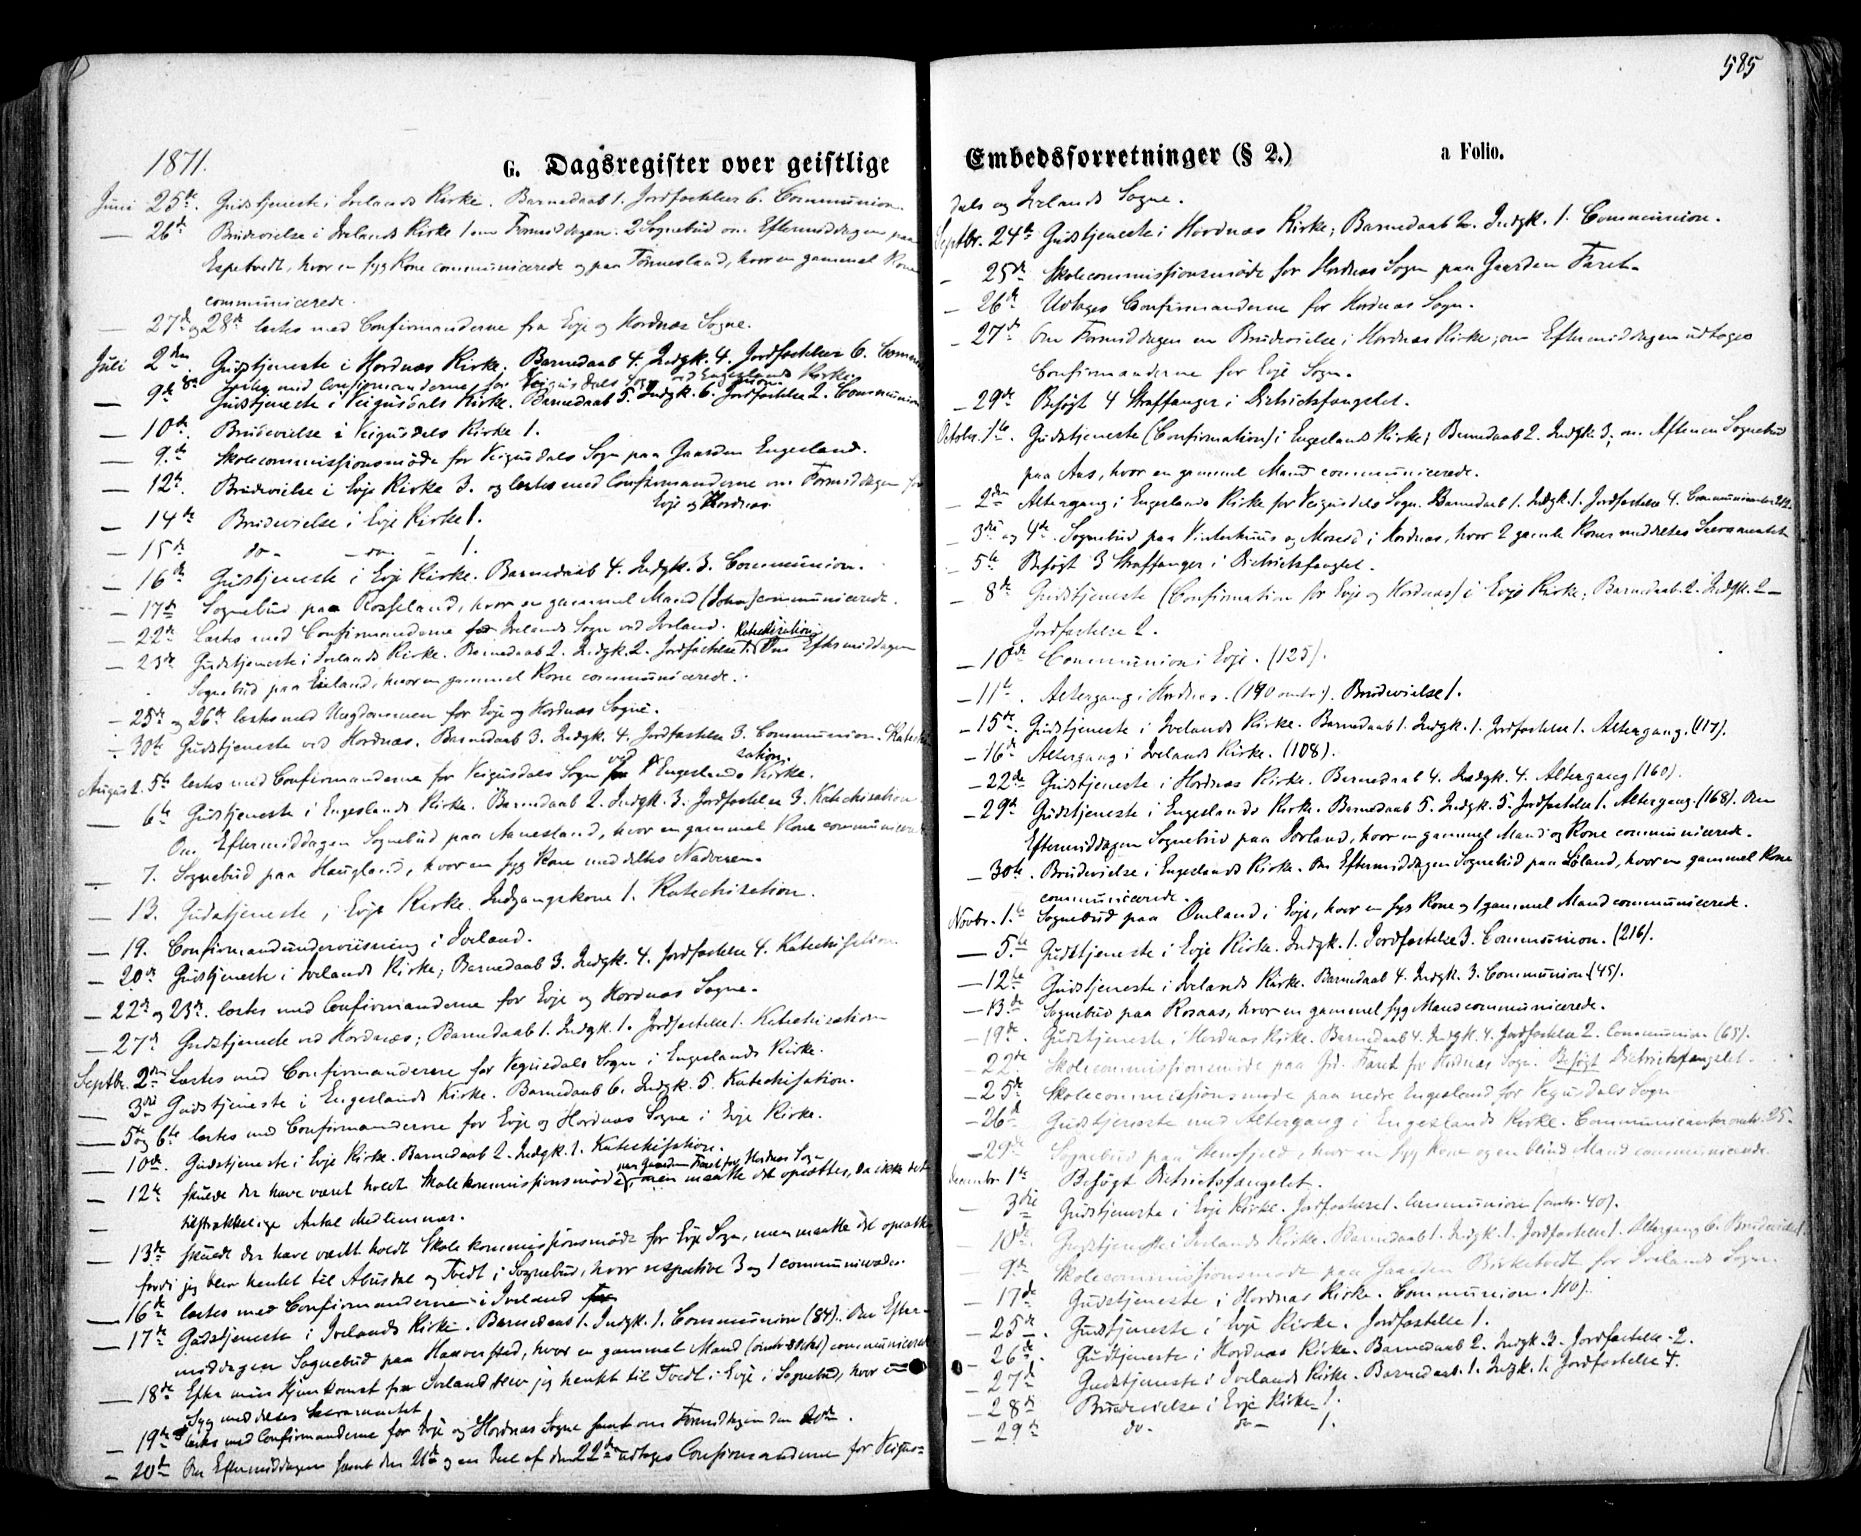 585
1871.
G. Dagsregister over geistlige
Juni 25de. Gudstjeneste i Ivelands Kirke. Barnedaab 1. Jordfæstelser 6. Communion.
— 26de Brudevielse i Ivelands Kirke 1 om Formiddagen. 2 Sognebud om Eftermiddagen paa
Espetvedt, hvor en syg Kone communicerede og paa Tønnesland, hvor en gammel Kone
communicerede.
— 27de og 28de læstes med Confirmanderne fra Evje og Hordnæs Sogne.
Juli 2den. Gudstjeneste i Hordnæs Kirke; Barnedaab 4. Indgk. 4. Jordfæstelser 6. Commu
8de læstes med Confirmanderne for Veigusdals Sogn ved Engeslands Kirke.
— 9de Gudstjeneste i Veigusdals Kirke. Barnedaab 5. Indgk. 6. Jordfæstelse 2. Communion
— 10de. Brudevielse i Veigusdals Kirke 1.
— 9.de Skolecommissionsmøde for Veigusdals Sogn paa Gaarden Engesland.
— 12te. Brudevielse i Evje Kirke 3. og læstes med Confirmanderne om Formiddagen for
Evje og Hordnæs.
— 14de Brudevielse i Evje Kirke 1.
— 15de do — do — 1.
— 16de Gudstjeneste i Evje Kirke. Barnedaab 4. Indgk. 3. Communion.
— 17de Sognebud paa Rosseland, hvor en gammel Mand (John) communicerede.
— 22de Læstes med Confirmanderne for Ivelands Sogn ved Iveland.
— 23de Gudstjeneste i Ivelands Kirke. Barnedaab 2. Indgk. 2. Jordfæstelse 1. Katechisation Om Eftermiddagen
Sognebud paa Eieland, hvor en gammel Kone communicerede.
— 25de og 26de læstes med Ungdommen for Evje og Hordnæs Sogne.
— 30te Gudstjeneste ved Hordnæs. Barnedaab 3. Indgk. 4. Jordfæstelse 3. Communion. Katechi
sation.
August. 5te læstes med Confirmanderne for Veigusdals Sogn ved Engeslands Kirke.
— 6te Gudstjeneste i Engeslands Kirke. Barnedaab 2. Indgk. 3. Jordfæstelse 3. Katechisation
Om Eftermiddagen Sognebud paa Aanesland, hvor en gammel Kone communicerede
— 7. Sognebud paa Haugland, hvor en syg Kone meddeltes Nadveren.
— 13. Gudstjeneste i Evje Kirke. Indgangskone 1. Katechisation.
— 19. Confirmandunderviisning i Iveland.
— 20de Gudstjeneste i Ivelands Kirke; Barnedaab 3. Indgk. 4. Jordfæstelse 4. Katechisation
— 22de og 23de. læstes med Confirmanderne for Evje og Hordnæs Sogne.
— 27de Gudstjeneste ved Hordnæs; Barnedaab 1. Indgk. 1. Jordfæstelse 1. Katechisation
Septbr. 2den Læstes med Confirmanderne for Vegusdals Sogn i Engeslands Kirke.
— 3die Gudstjeneste i Engeslands Kirke. Barnedaab 6. Indgk. 5. Katechisation.
— 5te og 6te læstes med Confirmanderne for Evje og Hordnæs Sogne i Evje Kirke.
— 10de. Gudstjeneste i Evje Kirke. Barnedaab 2. Indgk. 1. Katechisation.
paa Gaarden Faret for Hordnæs Sogn
— 12te skulde der have været holdt Skolekommissionsmøde, men maatte det opsættes, da ikke det
tilstrækkelige Antal Medlemmer.
— 13de skulde der have været holdt Skolekommissionsmøde for Evje Sogn, men maatte det opsættes
fordi jeg blev hentet til Abusdal og Tvedt i Sognebud, hvor respective 3 og 1 communicerede.
— 16de læstes med Confirmanderne i Iveland
— 17de Gudstjeneste i Ivelands Kirke. Barnedaab 1. Indgk. 1. Communion (84). Om Efter-
middagen Sognebud paa Haaverstad, hvor en gammel Mand communicerede
— 18de Efter min Hjemkomst fra Iveland blev jeg hentet til Tvedt i Evje i Sognebud, hvor en
Syg meddeltes Sacramentet
— 19de læstes med Confirmanderne for Evje og Hordnæs Sogne samt om Formiddagen den 20de.
— 20de Om Eftermiddagen samt den 21de og en Deel af den 22de udtoges Confirmanderne for Veigus-
Embedsforretninger (§ 2.) a Folio.
dals og Ivelands Sogne.
Septbr. 24de Gudstjeneste i Hordnæs Kirke; Barnedaab 2. Indgk. 1. Communion.
— 25de Skolecommissionsmøde for Hordnæs Sogn paa Gaarden Faret.
— 26de Udtoges Confirmanderne for Hordnæs Sogn.
— 27de Om Formiddagen en Brudevielse i Hordnæs Kirke; om Eftermiddagen udtoges
Confirmanderne for Evje Sogn.
— 29de Besøgt 4 Straffanger i Districtsfængslet.
Octobr. 1te. Gudstjeneste (Confirmation) i Engeslands Kirke; Barnedaab 2. Indgk. 3; om Aftenen Sognebud
paa Aas, hvor en gammel Mand communicerede.
— 2den Altergang i Engeslands Kirke for Veigusdals Sogn. Barnedaab 1. Indgk. 1. Jordfæstelse 4. Communicanter 212.
— 3die og 4de Sognebud paa Vinterhuus og Moseid i Hordnæs, hvor 2 gamle Koner meddeltes Sacramentet
— 5te Besøgt 3 Straffanger i Districtsfængslet.
— 8de Gudstjeneste (Confirmation for Evje og Hordnæs) i Evje Kirke; Barnedaab 2. Indgk. 2 —
Jordfæstelse 2.
— 10de Communion i Evje. (125).
— 11te. Altergang i Hordnæs. (140 omtr.). Brudevielse 1.
— 15de. Gudstjeneste i Ivelands Kirke. Barnedaab 1. Indgk. 1. Jordfæstelse 1. Altergang. (117).
— 16de Altergang i Ivelands Kirke. (108).
— 22de Gudstjeneste i Hordnæs Kirke. Barnedaab 4. Indgk. 4. Altergang (160).
— 29de Gudstjeneste i Engeslands Kirke. Barnedaab 5. Indgk. 5. Jordfæstelse 1. Altergang. (168). Om
Eftermiddagen Sognebud paa Iveland, hvor en gammel Mand og Kone communicerede.
— 30te. Brudevielse i Engeslands Kirke. Om Eftermiddagen Sognebud paa Løland, hvor en gammel Kone
communicerede.
Novbr. 1te Sognebud paa Omland i Evje, hvor en syg Kone og 1 gammel Mand communicerede.
— 5te Gudstjeneste i Evje Kirke. Indgk. 1. Jordfæstelse 3. Communion. (216).
— 12te Gudstjeneste i Ivelands Kirke. Barnedaab 4. Indgk. 3. Communion (45).
— 13de Sognebud paa Rosaas, hvor en gammel syg Mand communicerede.
— 19de Gudstjeneste i Hordnæs Kirke. Barnedaab 4. Indgk. 4. Jordfæstelse 2. Communion (65).
— 22de Skolecommissionsmøde paa Gd. Faret for Hordnæs Sogn. Besøgt Districtsfængslet.
— 25de Skolecommissionsmøde paa nedre Engesland for Vegusdals Sogn
— 26de Gudstjeneste med Altergang i Engeslands Kirke. Communicanter omtr. 25.
— 29de Sognebud paa Hensfjeld, hvor en syg Kone og en blind Mand communicerede.
Decembr 1te Besøgt Districtsfængslet.
— 3die Gudstjeneste i Evje Kirke. Jordfæstelse 1. Communion (omtr. 40).
— 10de Gudstjeneste i Ivelands Kirke. Barnedaab 1. Indgk. 1. Jordfæstelse 1. Altergang 6. Brudevielse 1.
— 9de Skolecommissionsmøde paa Gaarden Birketvedt for Ivelands Sogn.
— 17de Gudstjeneste i Hordnæs Kirke. Communion. (10).
— 25de. Gudstjeneste i Evje Kirke. Jordfæstelse 1.
— 26de. Gudstjeneste i Hordnæs Kirke. Barnedaab 2. Indgk. 3. Jordfæstelse 2.
— 27de Gudstjeneste i Ivelands Kirke. Barnedaab 1. Indgk. 1. Jordfæstelse 4.
— 28de Brudevielse i Evje Kirke 1.
— 29de do — do — 1.